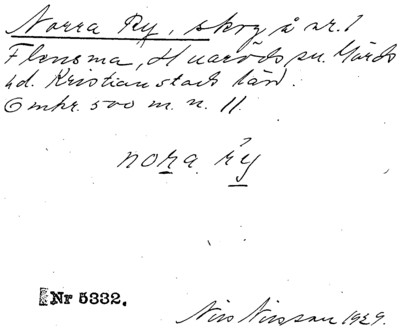 Norra Ry, skog å nr. 1
Flensma, Huaröds sn. Gärds
hd. Kristianstads län.
Omkr. 500 m. n. 11.
nora ry
Nr 5332.
Nils Nilsson 1929.